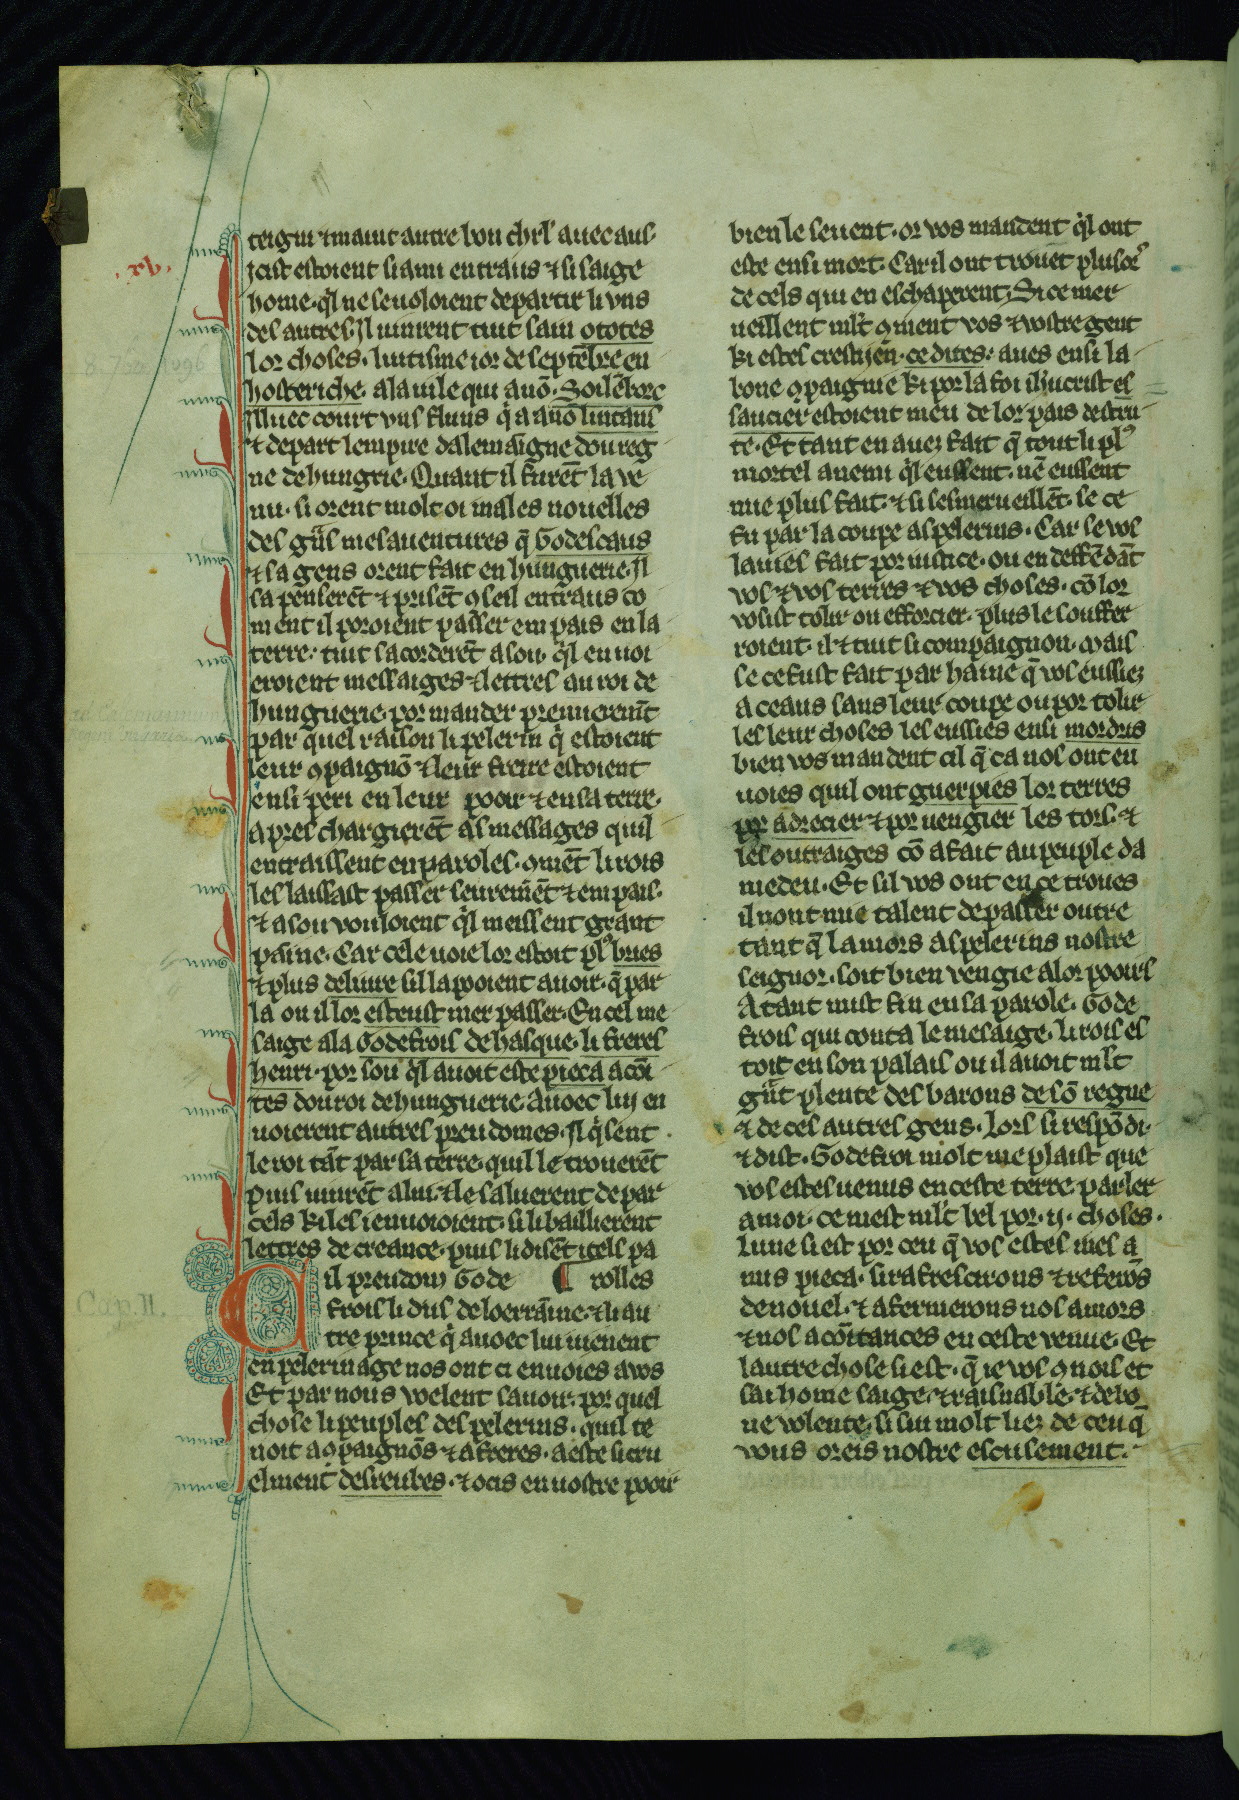 teignī ⁊ maint autre bon chrl' auec aus·
.xv.
jcist estoient si ami entraus ⁊ si saige
home· ql ne se uoloient departir li uns
des autres. Il uinrent tuit sain o totes
lor choses· luitisme ior de septēbre en
hosteriche· a la uile qui a nō· Soilēborc
Illuec court uns fluns q̇ a a nō lintans
⁊ depart lempire dalemaīgne dou reg
ne de hungrie· Quant il furēt la ve
nu· si orent molt oi males nouelles
des gūs mesauentures q̄ Godescaus
⁊ sa gens orent fait en hunguerie· Il
sa penserēt ⁊ prisēt ꝯseil entraus co
ment il poroient passer em pais en la
terre· tuit sacorderēt a sou· ql enuoi
eroient messaiges ⁊ lettres au roi de
hunguerie· por mander premieremt
par quel raison li pelerin q̇ estoient
leur ꝯpaignō ⁊ leur frere estoient
ensi peri en leur pooir ⁊ en sa terre·
apres chargierēt as messages quil
entraissent en paroles· ꝯmēt li rois
les laissast passer seuremēt ⁊ em pais·
⁊ a sou vouloient ql meissent grant
paine· Car cele uoie lor estoit plꝰ bries
⁊ plus deliure sil la pooient auoir· q̄ par
la ou il lor esteust mer passer· En cel me
saige ala Godefrois de hasque· li freres
henri· por sou ql auoit este pieca acoī
tes dou roi de hunguerie· Auoec lui en
uoierent autres preudomes· Il q̇sent
le roi tāt par sa terre· quil le trouerēt
Puis uinrēt a lui ⁊ le saluerent de par
cels ki les i enuoioient· si li baillierent
lettres de creance· puis li disēt itels pa
Cil preudom Gode ¶ rolles
Cap. II.
frois li dus de loerraīne· ⁊ li au
tre prince q̇ auoec lui uienent
en pelerinage nos ont ci enuoies a vos
Et par nous voelent sauoir· por quel
chose li peuples des pelerins· quil te
noit a ꝯpaignōs ⁊ a freres· a este si cru
elment desreubes· ⁊ ocis en uostre pooir
bien le seuent· or vos mandent ql ont
este ensi mort· Car il ont trouet plusorˀ
de cels qui en eschaperent; Si ce mer
ueillent mlt̄ ꝯment vos ⁊ vostre gent
ki estes crestijēn· ce dites· aues ensi la
bone ꝯpaignie ki por la foi ihucrist es
saucier estoient meu de lor pais destru
te· Et tant en auez fait q̄ tout li plꝰ
mortel anemi ql eussent· nē eussent
mie plus fait· ⁊ si sesmerueillēt· se ce
fu par la coupe as pelerins· Car se vos
lauies fait por iustice· ou en deffēdāt
vos ⁊ vos terres ⁊ vos choses· cō lor
vosist tolir ou efforcier· plus le souffer
roient· il ⁊ tuit si compaignon· Mais
se ce fust fait par haine q̄ vos eussiez
a ceaus sans leur coupe ou por tolir
les leur choses les eussies ensi mordris
bien vos mandent cil q̄ ca nos ont en
uoies quil ont guerpies lor terres
por adrecier ⁊ por uengier les tors· ⁊
les outraiges cō a fait au peuple da
medeu· Et sil vos ont en ce troues
il nont mie talent de passer outre
tant q̄ la mors as pelerins nostre
seignor· soit bien vengie a lor pooirs
A tant mist fin en sa parole· Gode
frois qui conta le mesaige· li rois es
toit en son palais ou il auoit mlt̄
gāt plente des barons de sō regne
⁊ de ces autres gens· Lors si respōdi·
⁊ dist· Godefroi molt me plaist que
vos estes uenus en ceste terre parler
a moi· ce mest mlt̄ bel por· ij· choses·
Lune si est por ceu q̄ vos estes mes a
mis pieca· si rafrescirons ⁊ referōs
de nouel· ⁊ afermerons nos amors
⁊ nos acoītances en ceste venue· Et
lautre chose si est· q̄ ie vos ꝯnois et
sai home saige· ⁊ raisnable· ⁊ de bo
ne volente· si sui molt liez de ceu q̄
vous oreis nostre escusement·